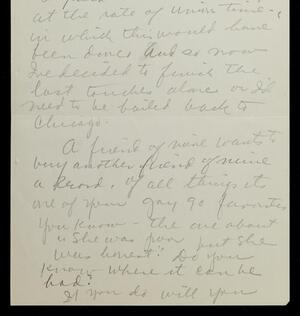 at the rate of union time -
in which this would have
been done. And so now
I've decided to finish the
last touches alone or I'd
need to be bailed back to
Chicago.
A friend of mine wants to
buy another friend of mine
a record. Of all things its
one of your gay 90 favorites
You know - the one about
"She was poor but she
was honest." Do you
know where it can be
had?
If you do will you